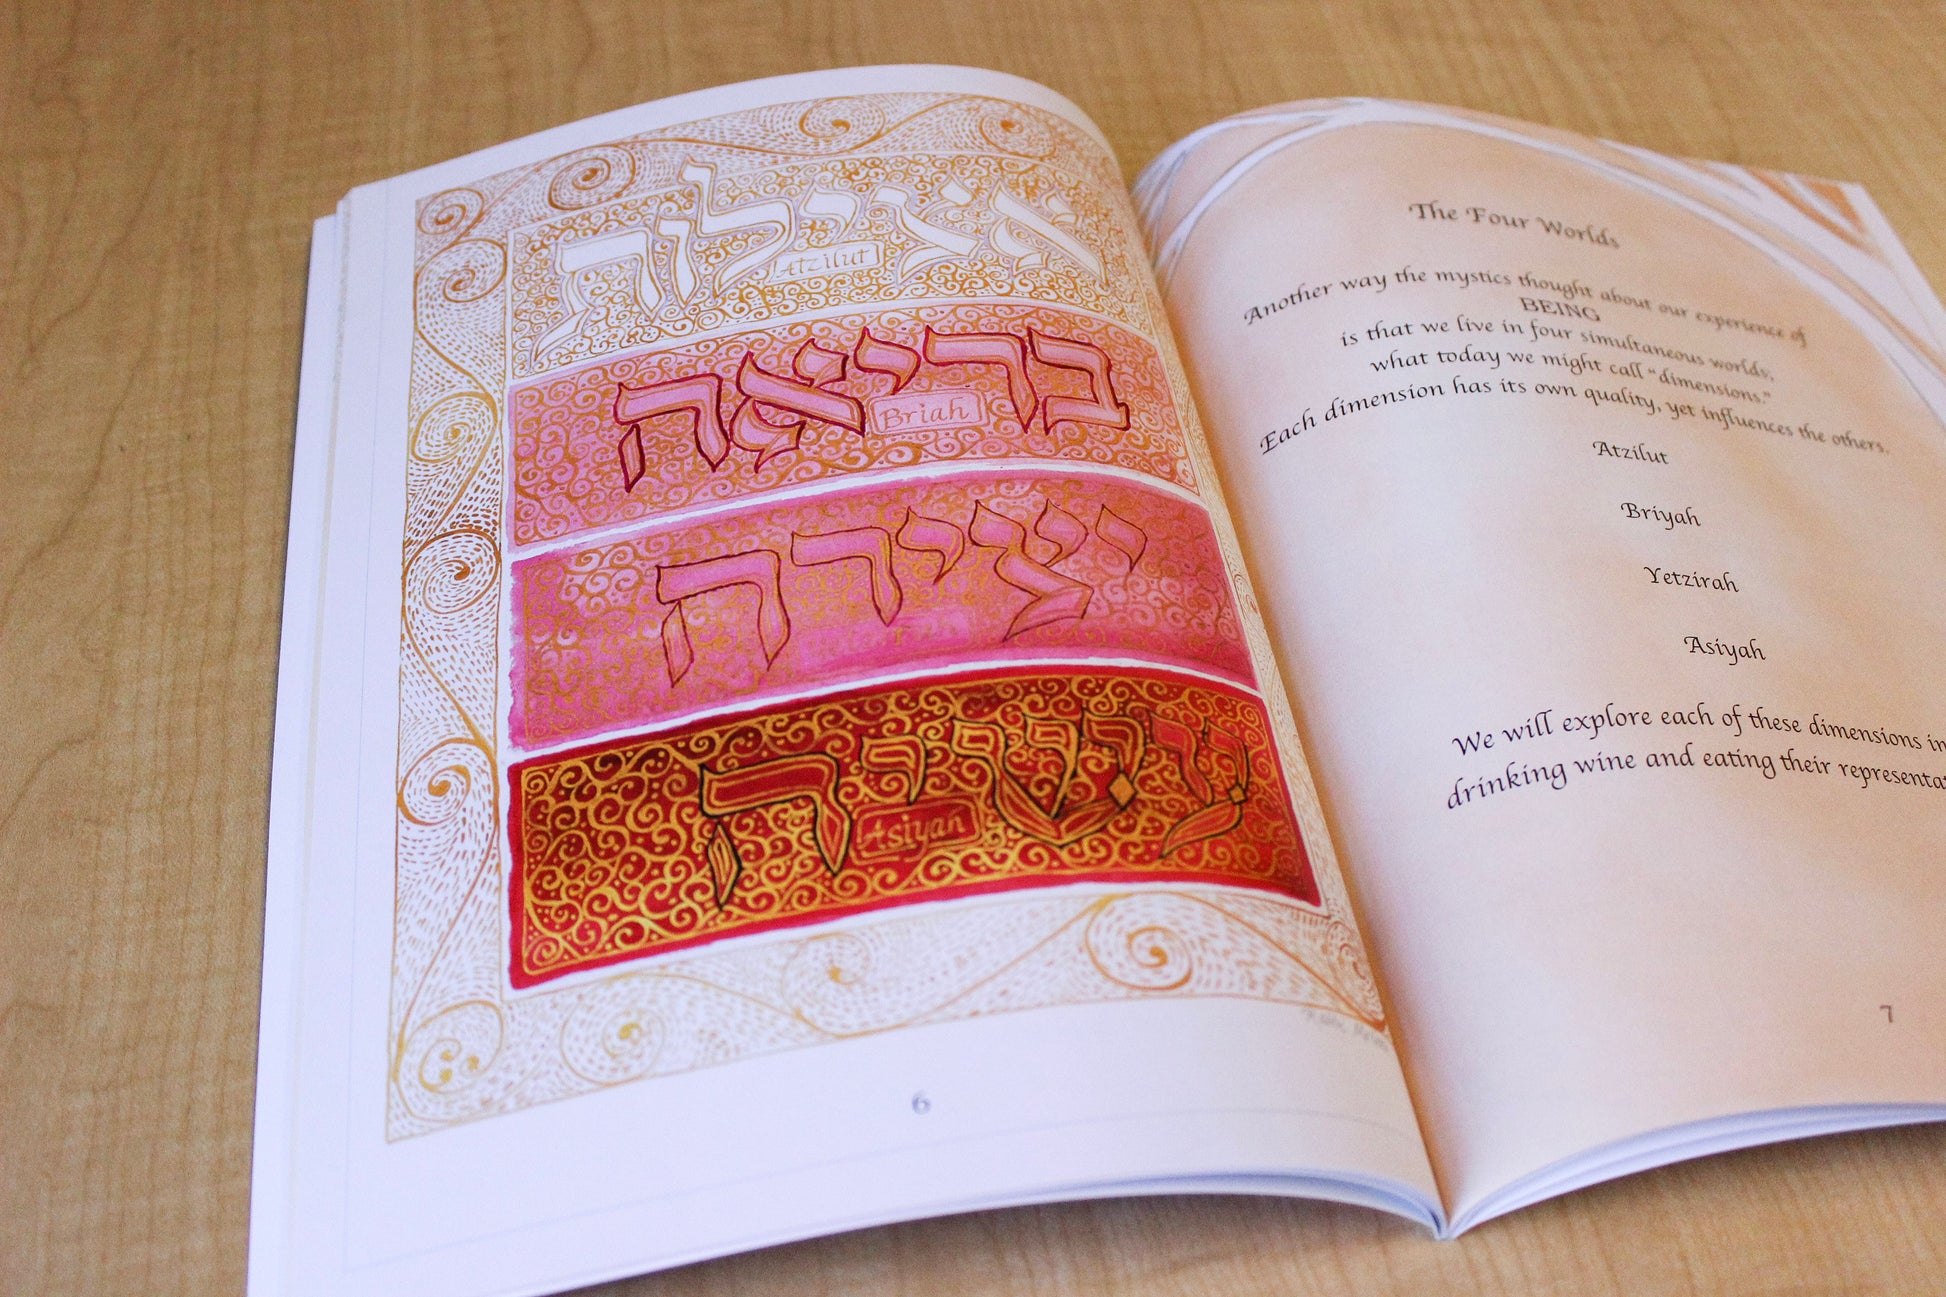 אצילות
Atzilut
בריאה
Briah
יצירה
עשיה
Asiyah
6
The Four Worlds
Another way the mystics thought about our experience of
BEING
is that we live in four simultaneous worlds,
what today we might call "dimensions."
Each dimension has its own quality, yet influences the others.
Atzilut
Briyah
Yetzirah
Asiyah
We will explore each of these dimensions in
drinking wine and eating their representa
7